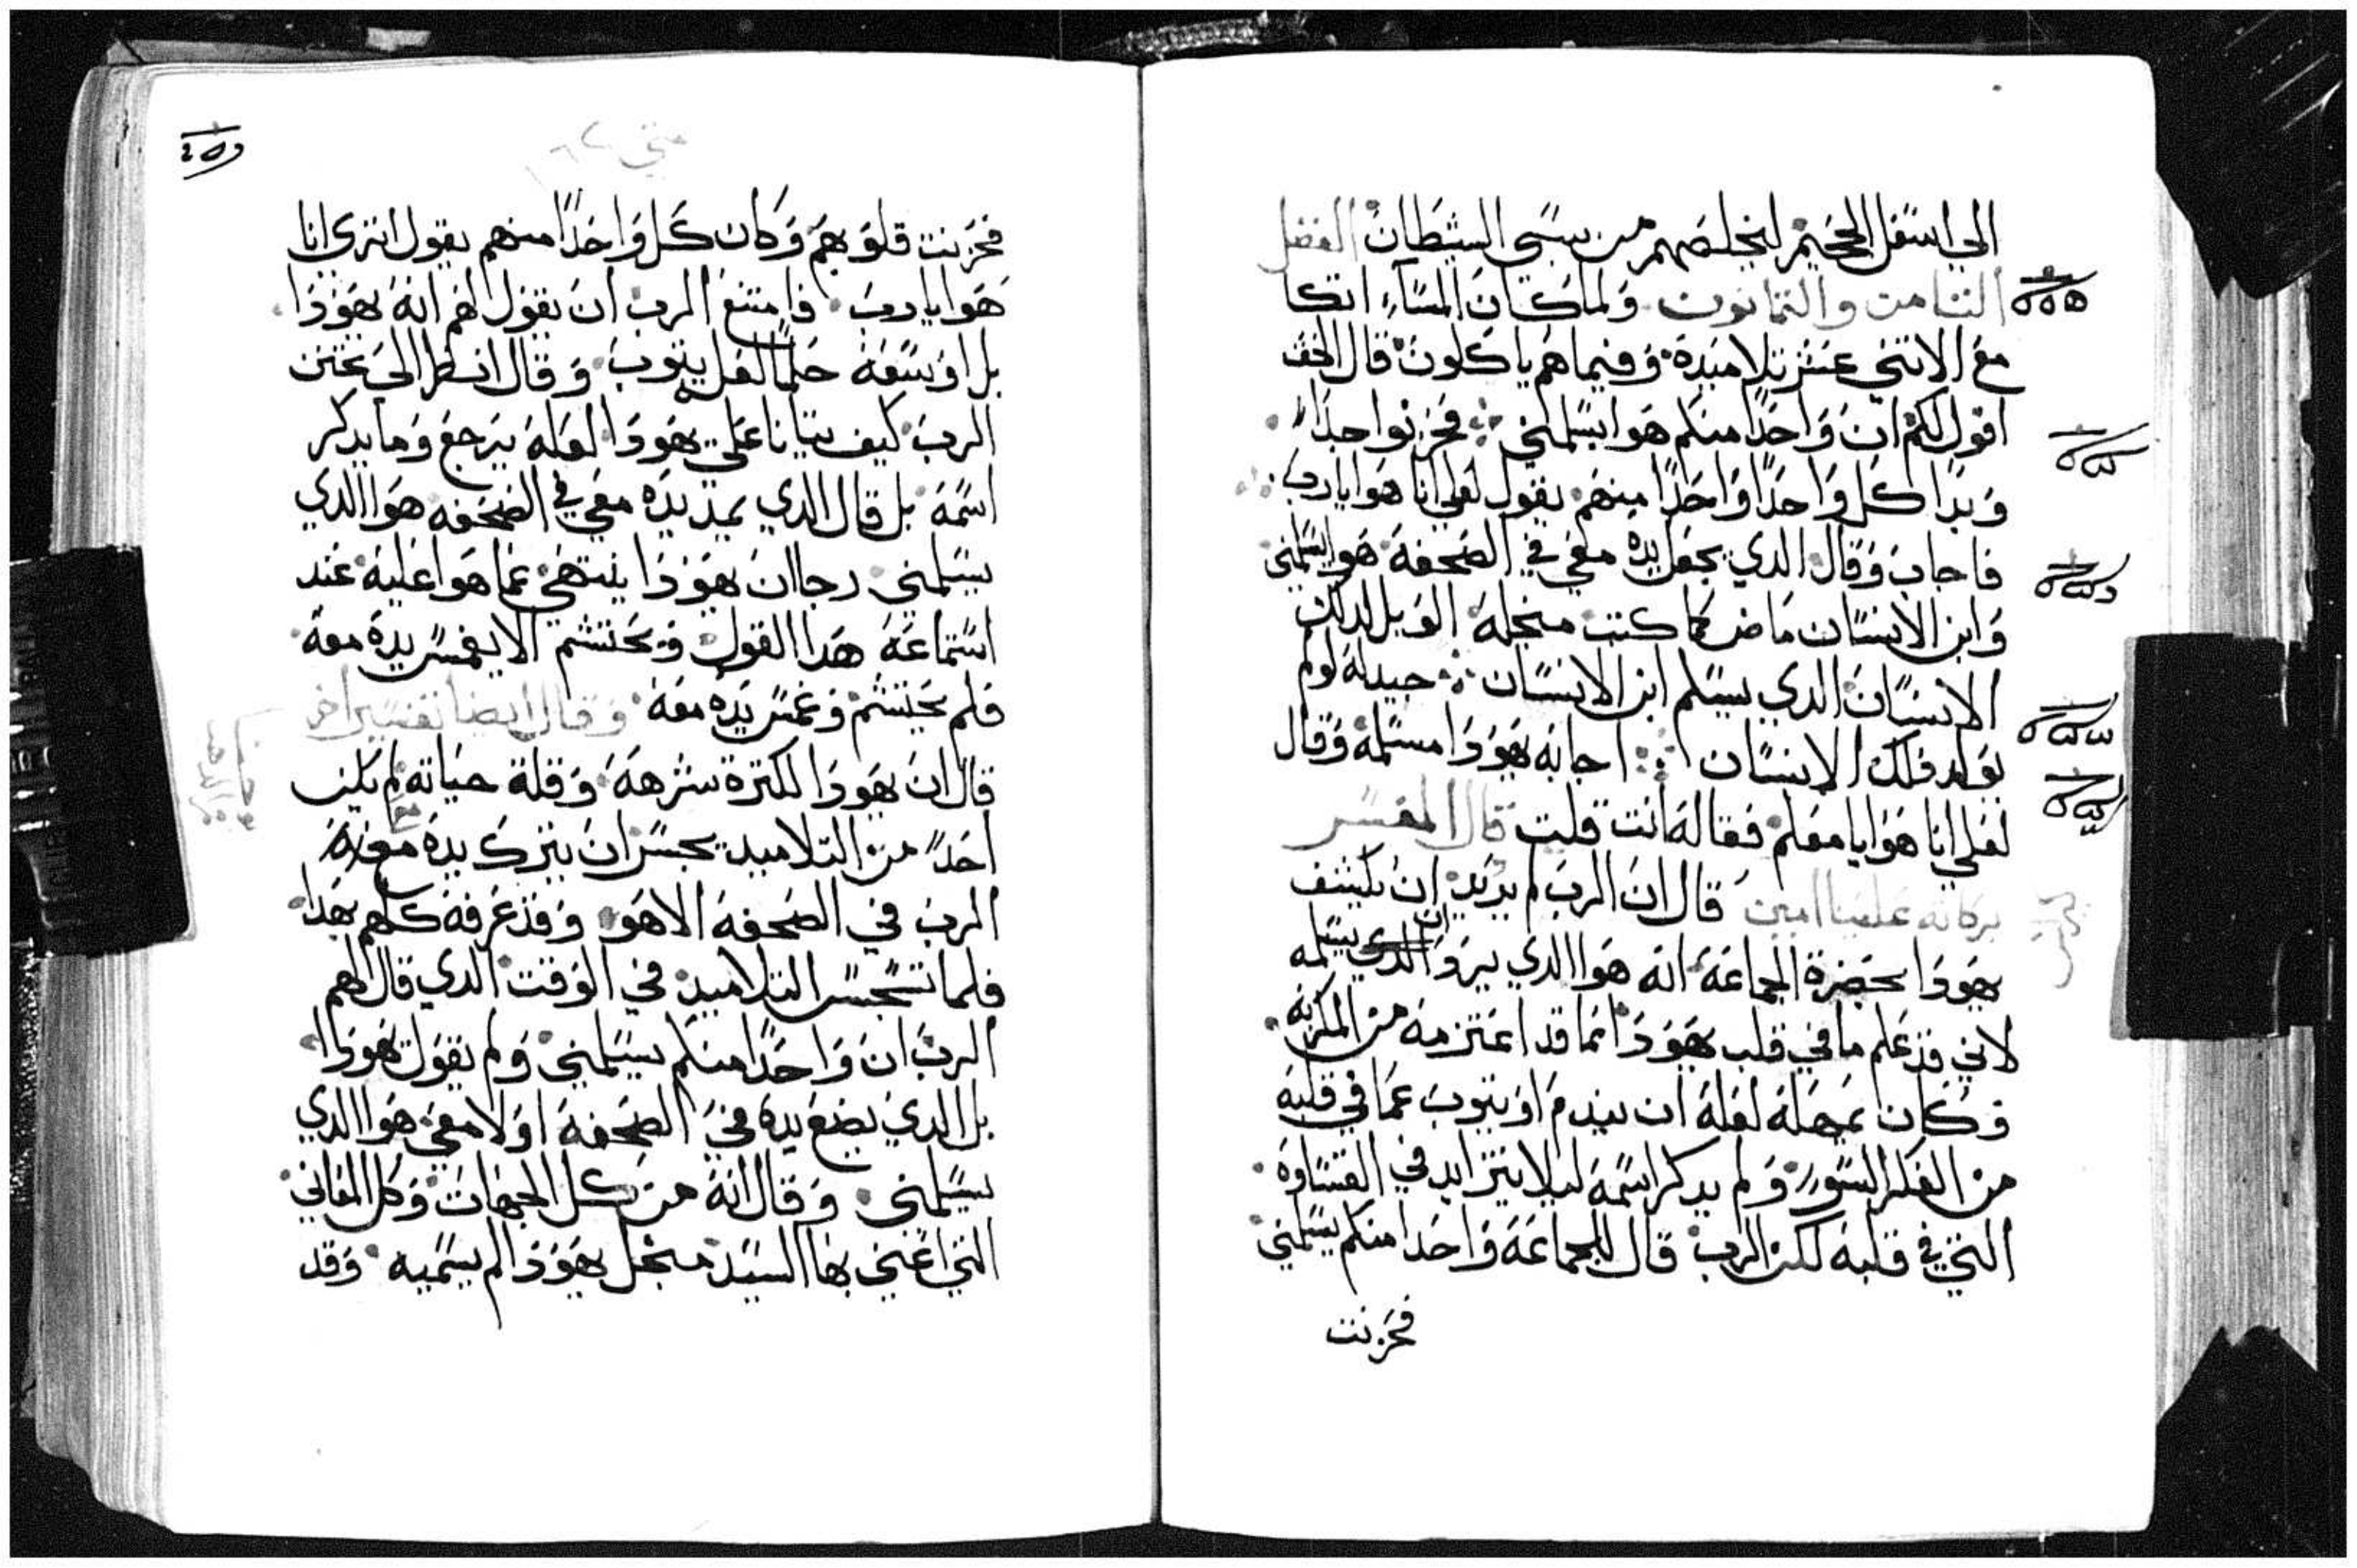 الي اسفل الجحيم ليخلصهم من سبي الشيطان الفصل
الثامن والثمانون ولما كان المساء اتكا
مع الاتني عشر تلاميده وفيما هم ياكلون قال الحق
اقول لكم ان واحدا منكم هوا يسلمني فحزنوا جدا
وبدا كل واحدا واحدا منهم يقول لعلي انا هوا يارب
فاجاب وقال الدي يجعل يده معي في الصحفه هوا يسلمني
وابن الانسان ماض كما كتب منجله الويل لدلك
الانسان الدي يسلم ابن الانسان جيد له لو لم
يولد دلك الانسان اجابه يهودا مسلمه وقال
لعلي انا هوا يا معلم فقال له انت قلت قال المفسر
بركاته علينا امين قال ان الرب لم يريد ان يكشف
يهودا بحضرة الجماعه انه هوا الدي يسلمه
لاني قد علم ما في قلب يهودا انما قد اعتزمه من
وكان يمهله لعله ان يندم او يتوب عما في قلبه
من الفكر السور ولم يدكر اسمه ليلا يتزايد في القساوه
التي في قلبه لكن الرب قال للجماعه واحدا منكم يسلمني
فحزنت
متي ٢٦
فحزنت قلوبهم وكان كل واحدا منهم يقول اتري انا
هوا يارب فامتنع الرب ان يقول لهم انه يهودا
بل اوسعه حلما لعل يتوب وقال انظر الي تحنن
الرب كيف يتانا علي يهودا لعله يرجع وما يدكر
اسمه بل قال الدي يمد يده معي في الصحفه هوا الدي
يسلمني رجا ان يهودا ينتهي عما هوا عليه عند
استماعه هدا القول ويحتشم الا يغمس يده معه
فلم يحتشم وغمس يده معه وقال ايضا تفسير اخر
قال ان يهودا لكترة شرهه وقلة حياته لم يكن
احدا من التلاميد يجسر ان يترك يده مع
الرب في الصحفه الا هو وقد عرفه كلهم بهدا
فلما تسجس التلاميد في الوقت الدي قال لهم
الرب ان واحدا منكم يسلمني ولم يقول يهودا
بل الدي يضع يده في الصحفه اولا معي هوا الدي
يسلمني وقال انه من كل الجهات وكل المعاني
التي اعني بها السيد منجل يهودا لم يسميه وقد